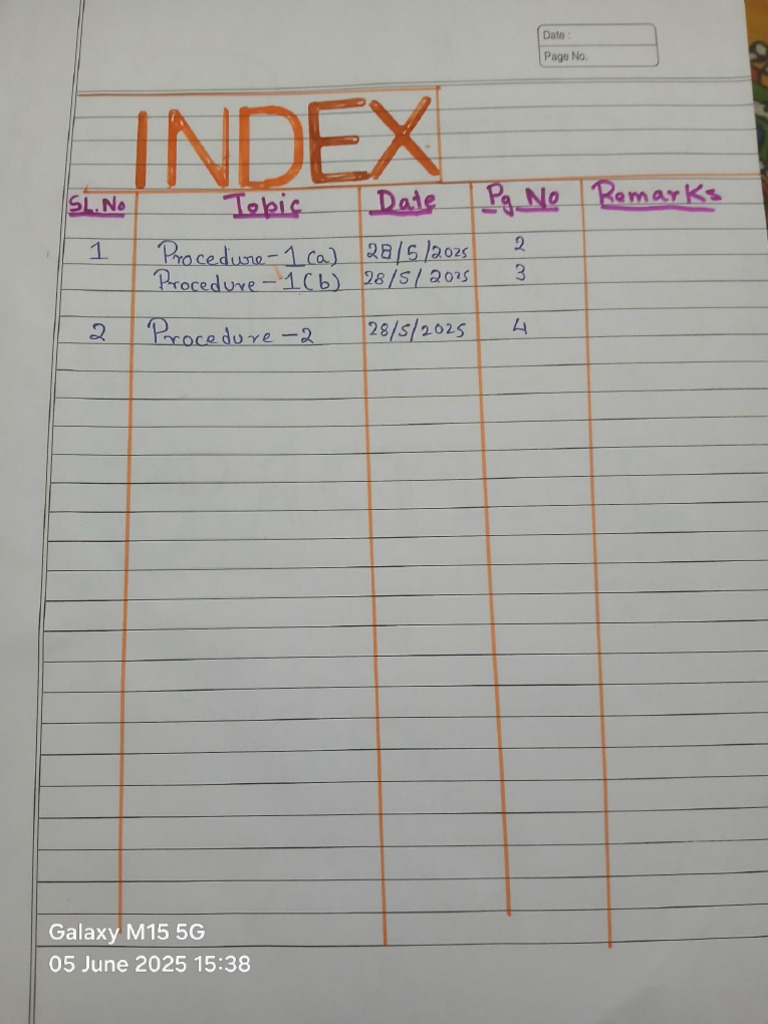 Date :
Page No.
INDEX
SL.No Topic Date Pg No Remarks
1 Procedure-1(a) 28/5/2025 2
Procedure-1(b) 28/5/2025 3
2 Procedure-2 28/5/2025 4
Galaxy M15 5G
05 June 2025 15:38